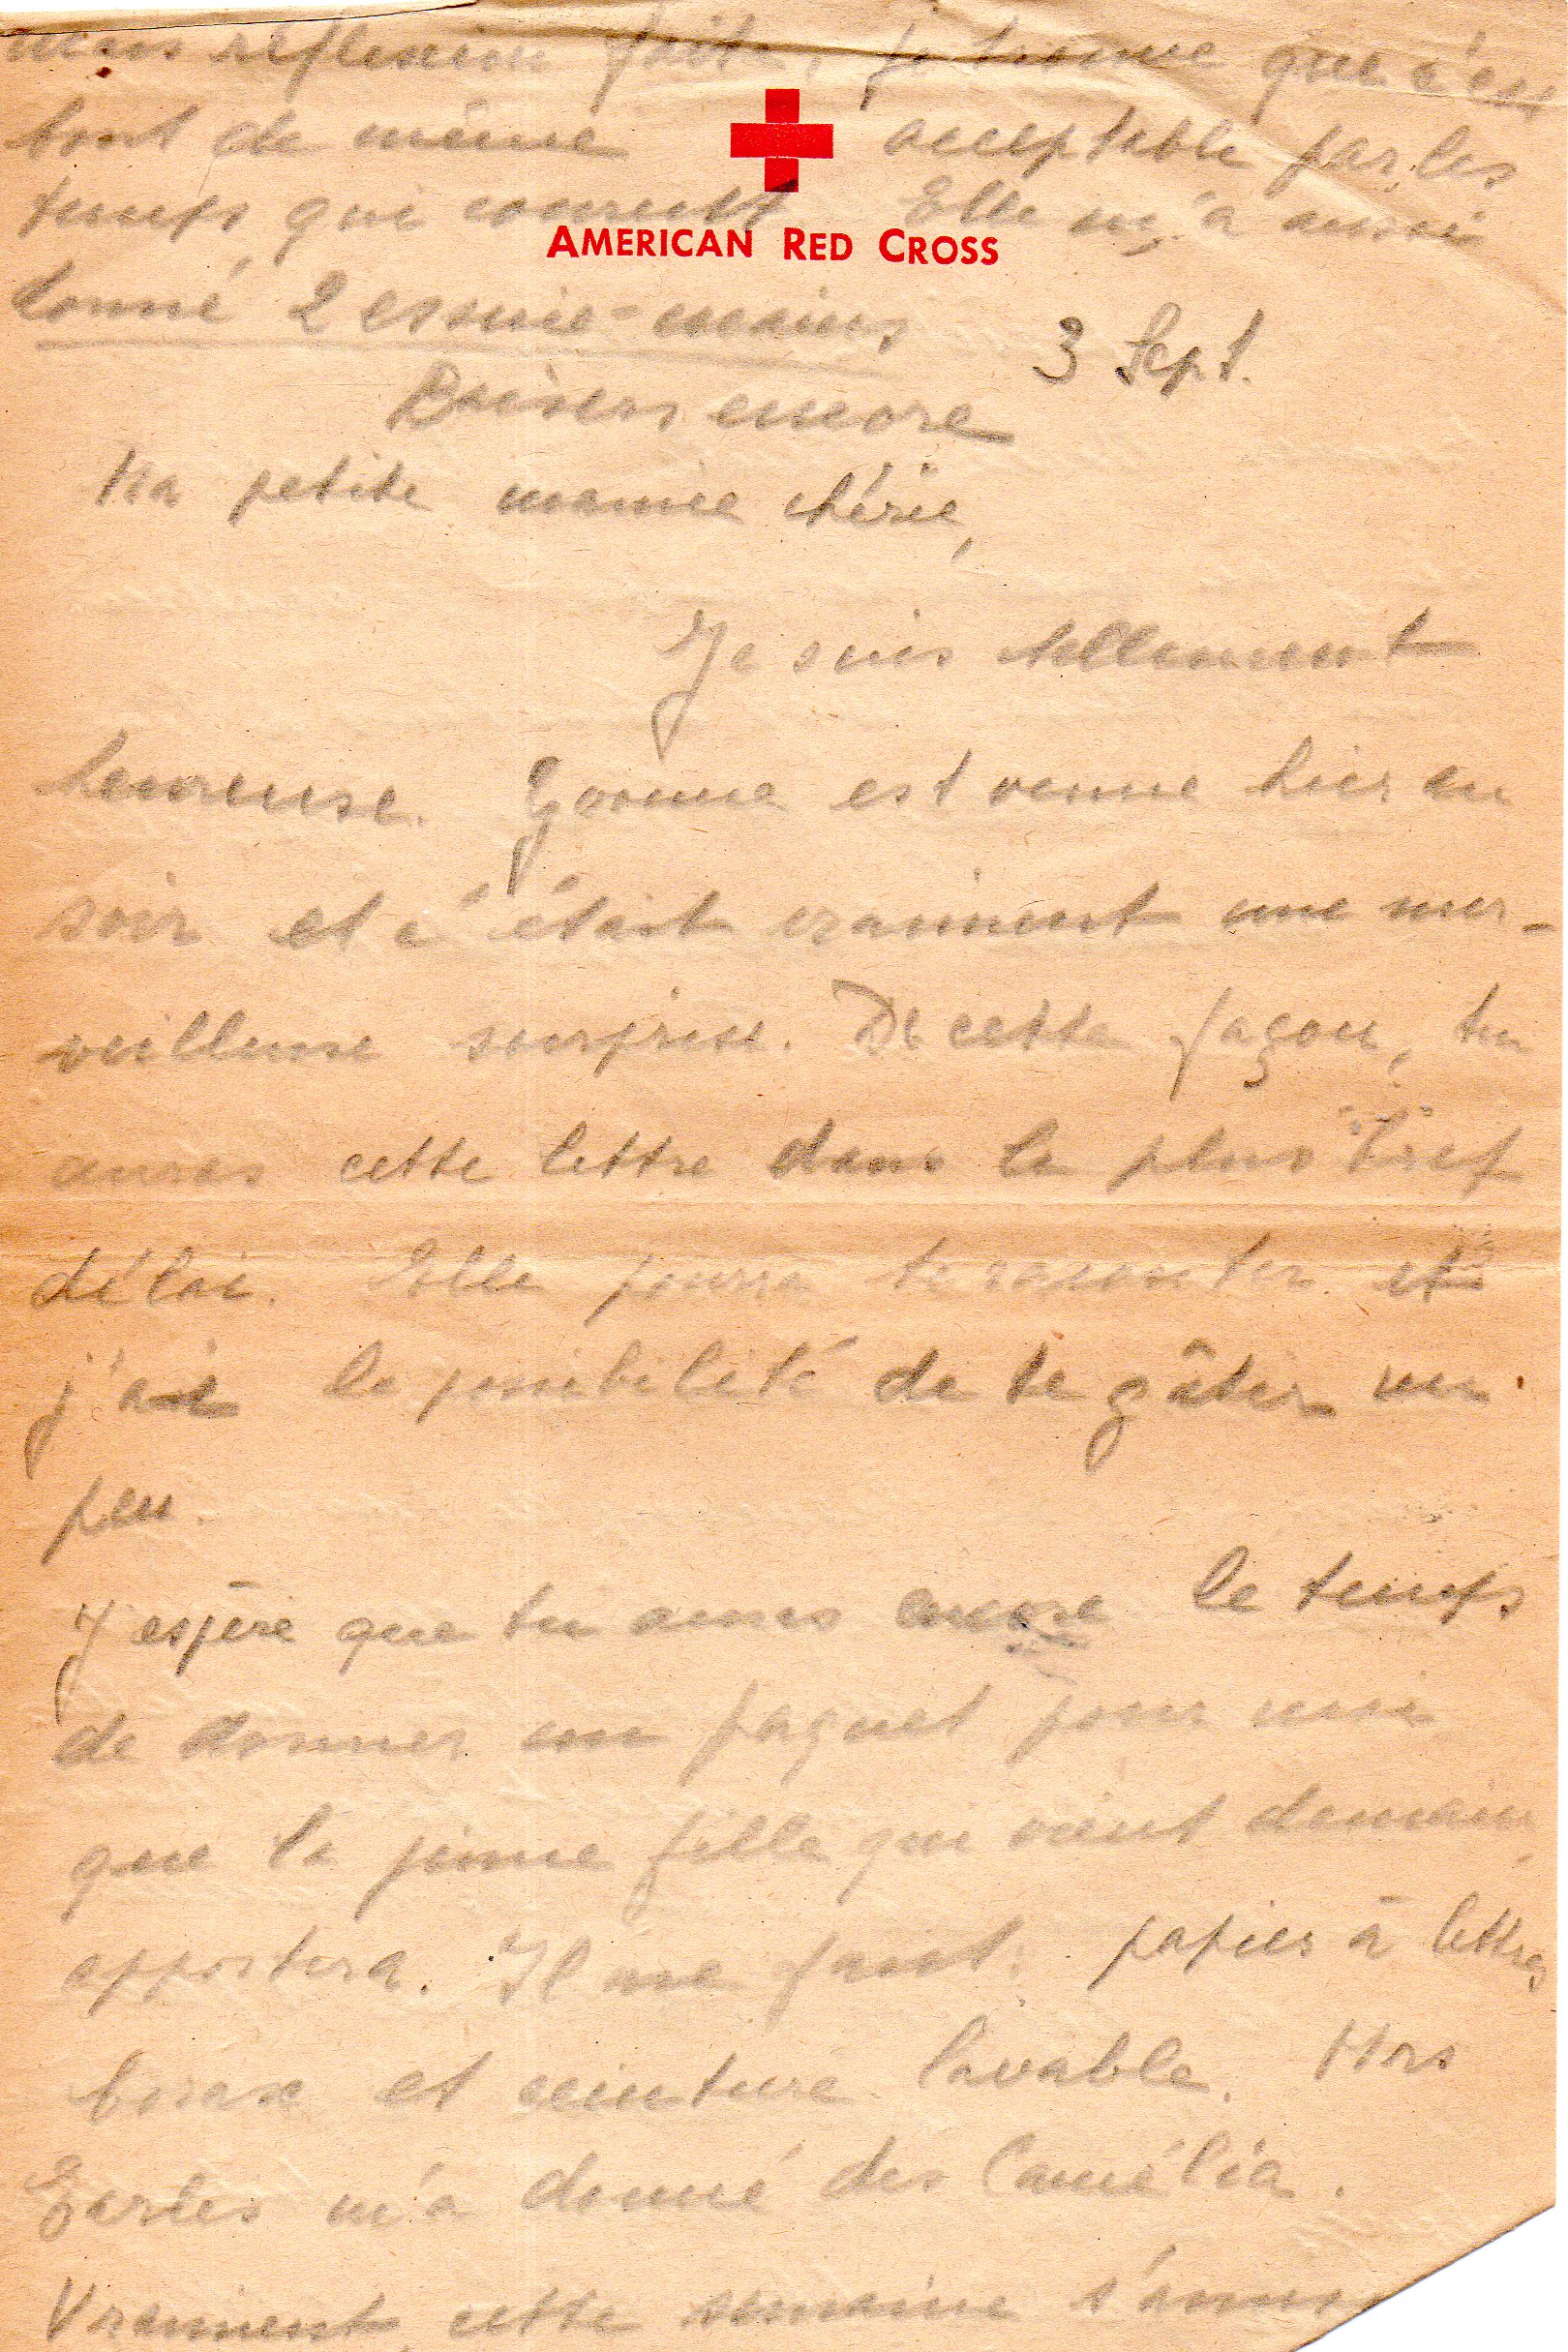 mais reflexion faite, je trouve que c'est
tout de même acceptable par les
temps qui courent Elle m'a aussi
donné 2 essuie-mains
AMERICAN RED CROSS
3 Sept.
Baisers encore
Ma petite mamie chérie,
Je suis tellement
heureuse. Yvonne est venue hier au
soir et c'était vraiment une mer-
veilleuse surprise. De cette façon, tu
auras cette lettre dans le plus bref
délai. Elle pourra te raconter et
j'ai la possibilité de te gâter un
peu.
J'espère que tu auras encore le temps
de donner un paquet pour moi
que la jeune fille qui vient demain
apportera. Il me faut: papier à lettres
borax et ceinture lavable. Mrs
Earles m'a donné des Camélia.
Vraiment cette semaine